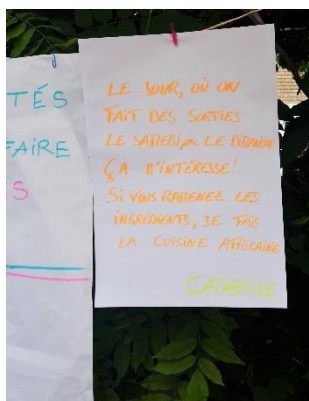 TÉS
FAIRE
S
LE JOUR, OÙ ON
FAIT DES SORTIES
LE SAMEDI ou LE DIMANCHE
ÇA M'INTÉRESSE!
SI VOUS RAMENEZ LES
INGRÉDIENTS, JE FAIS
LA CUISINE AFRICAINE
CATHERINE